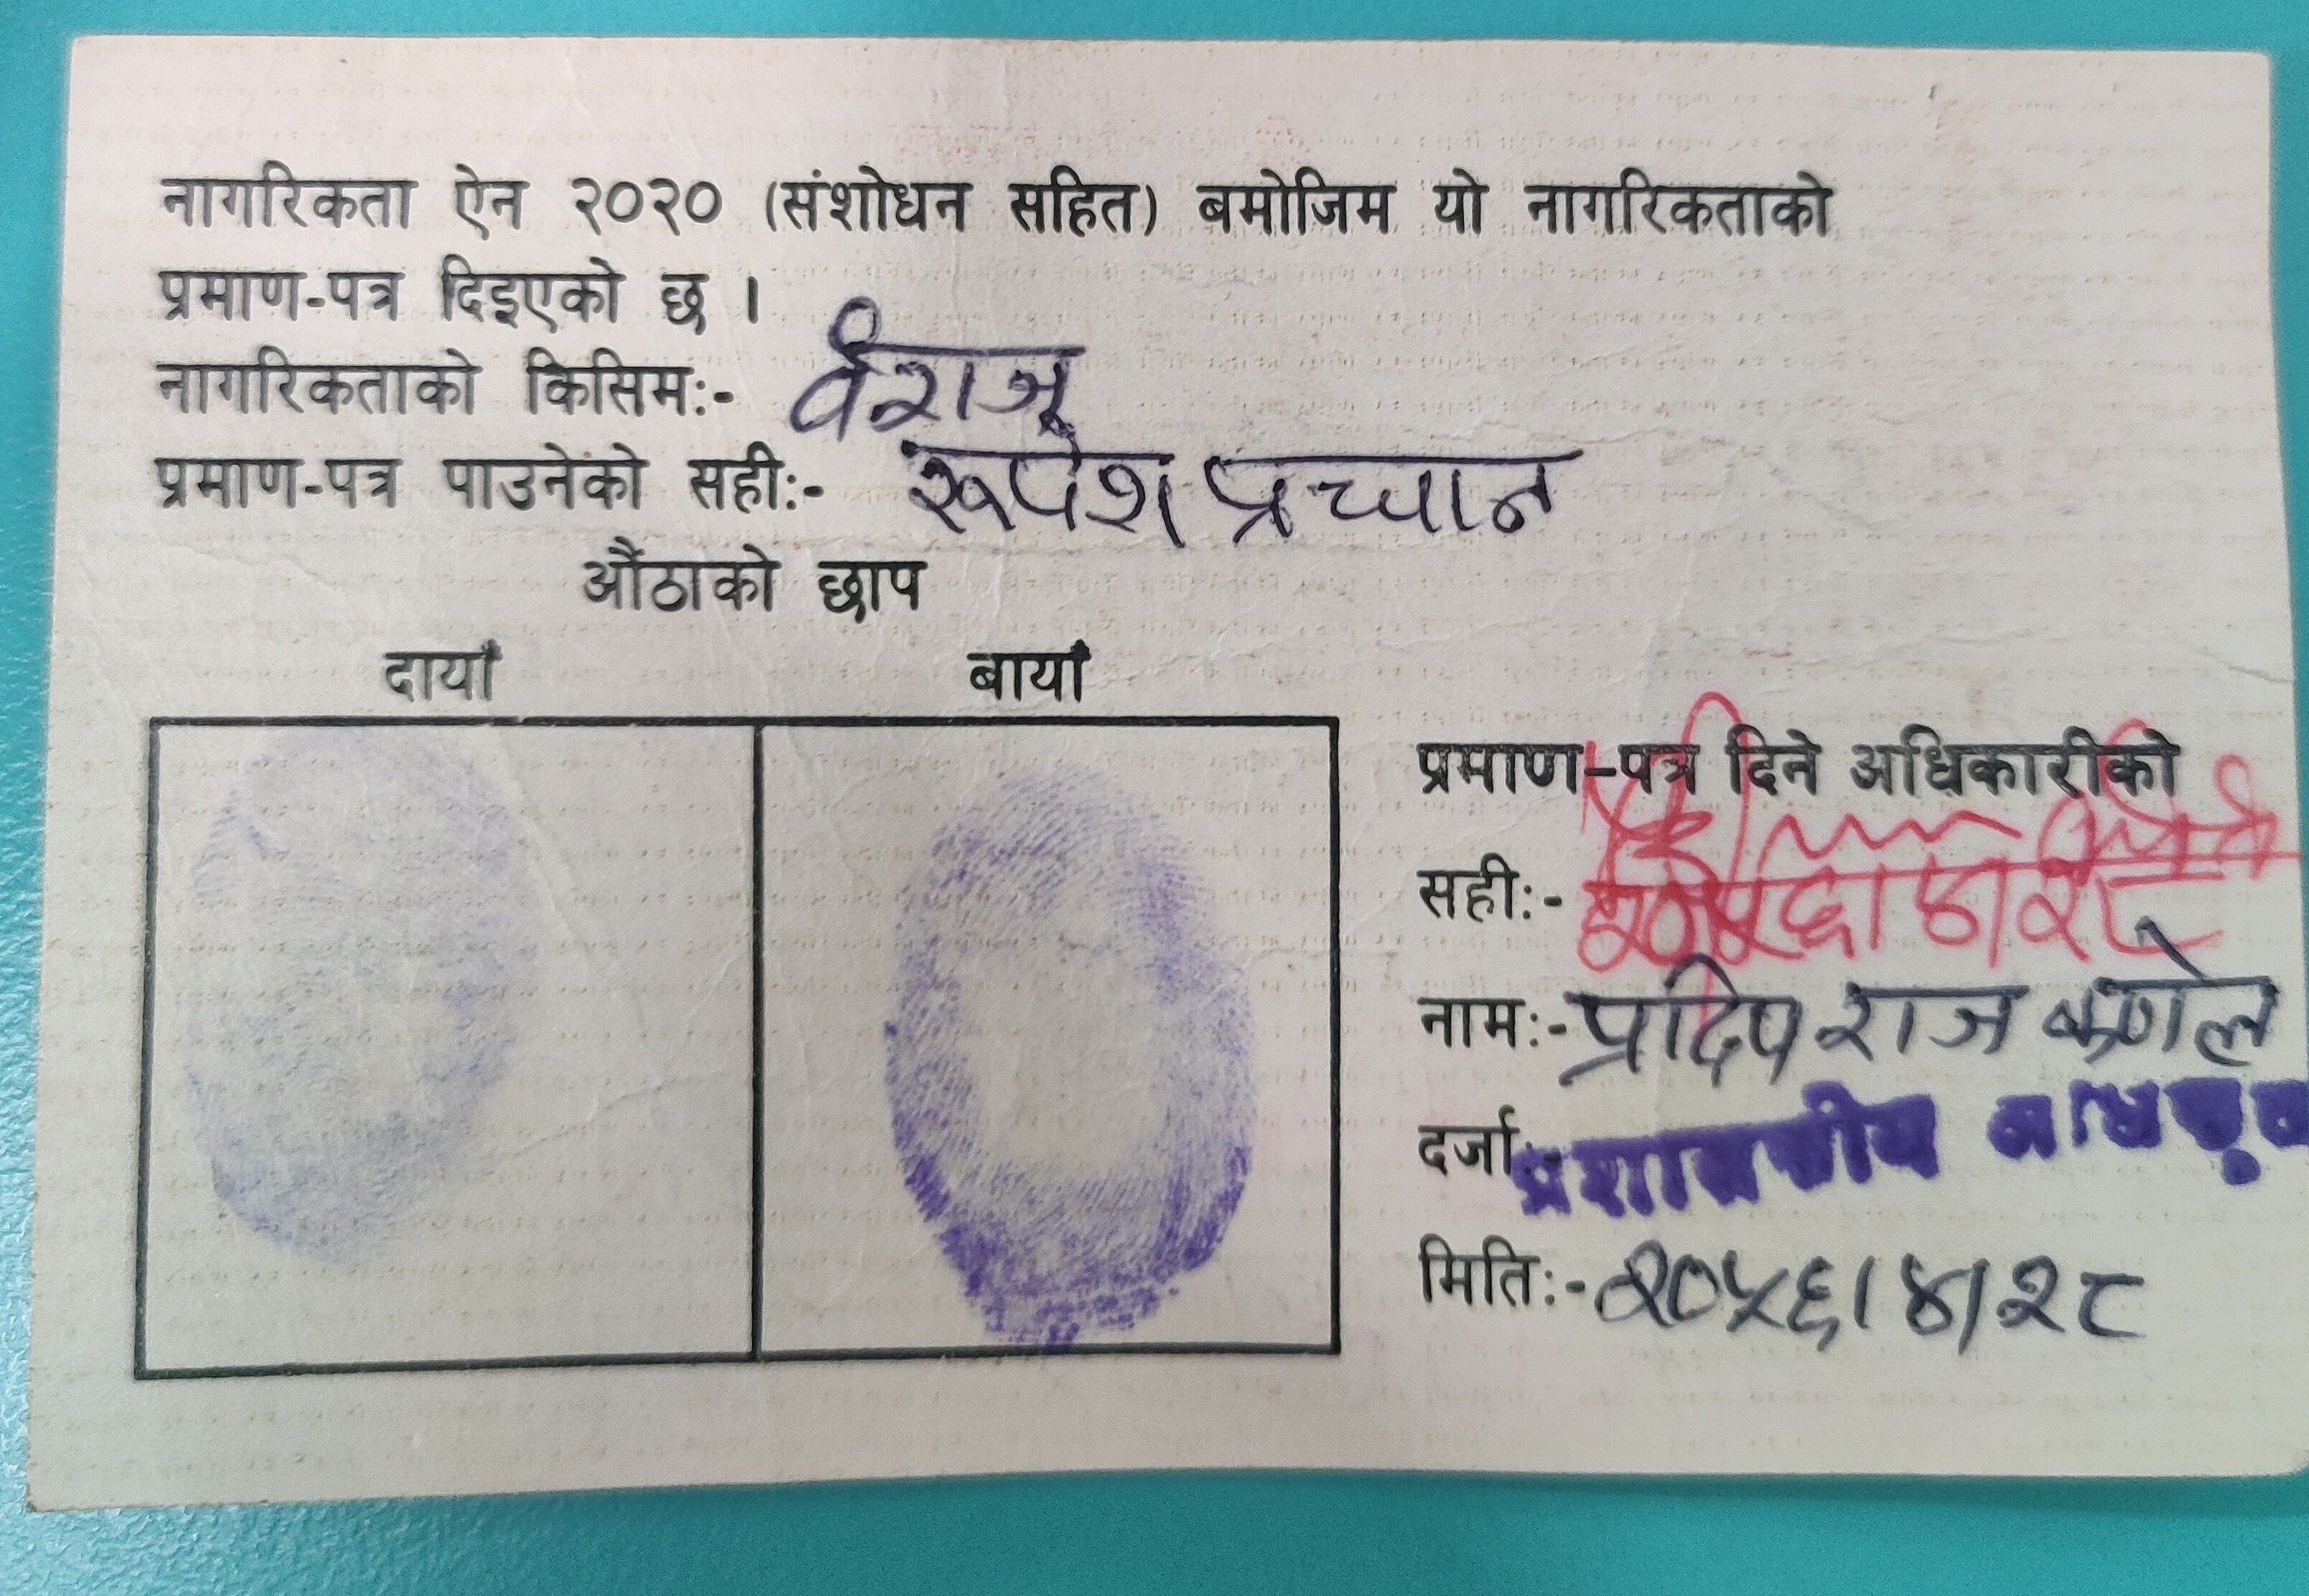 नागरिकता ऐन २०२० (संशोधन सहित) बमोजिम यो नागरिकताको
प्रमाण-पत्र दिइएको छ ।
नागरिकताको किसिम:- वंशज
प्रमाण-पत्र पाउनेको सही:- रूपेश प्रधान
औंठाको छाप
दायाँ बायाँ
प्रमाण-पत्र दिने अधिकारीको
सही:- २०५६।४।२८
नाम:- प्रदिप राज कणेल
दर्जा:- प्रशासकीय अधिकृत
मिति:- २०५६।४।२८